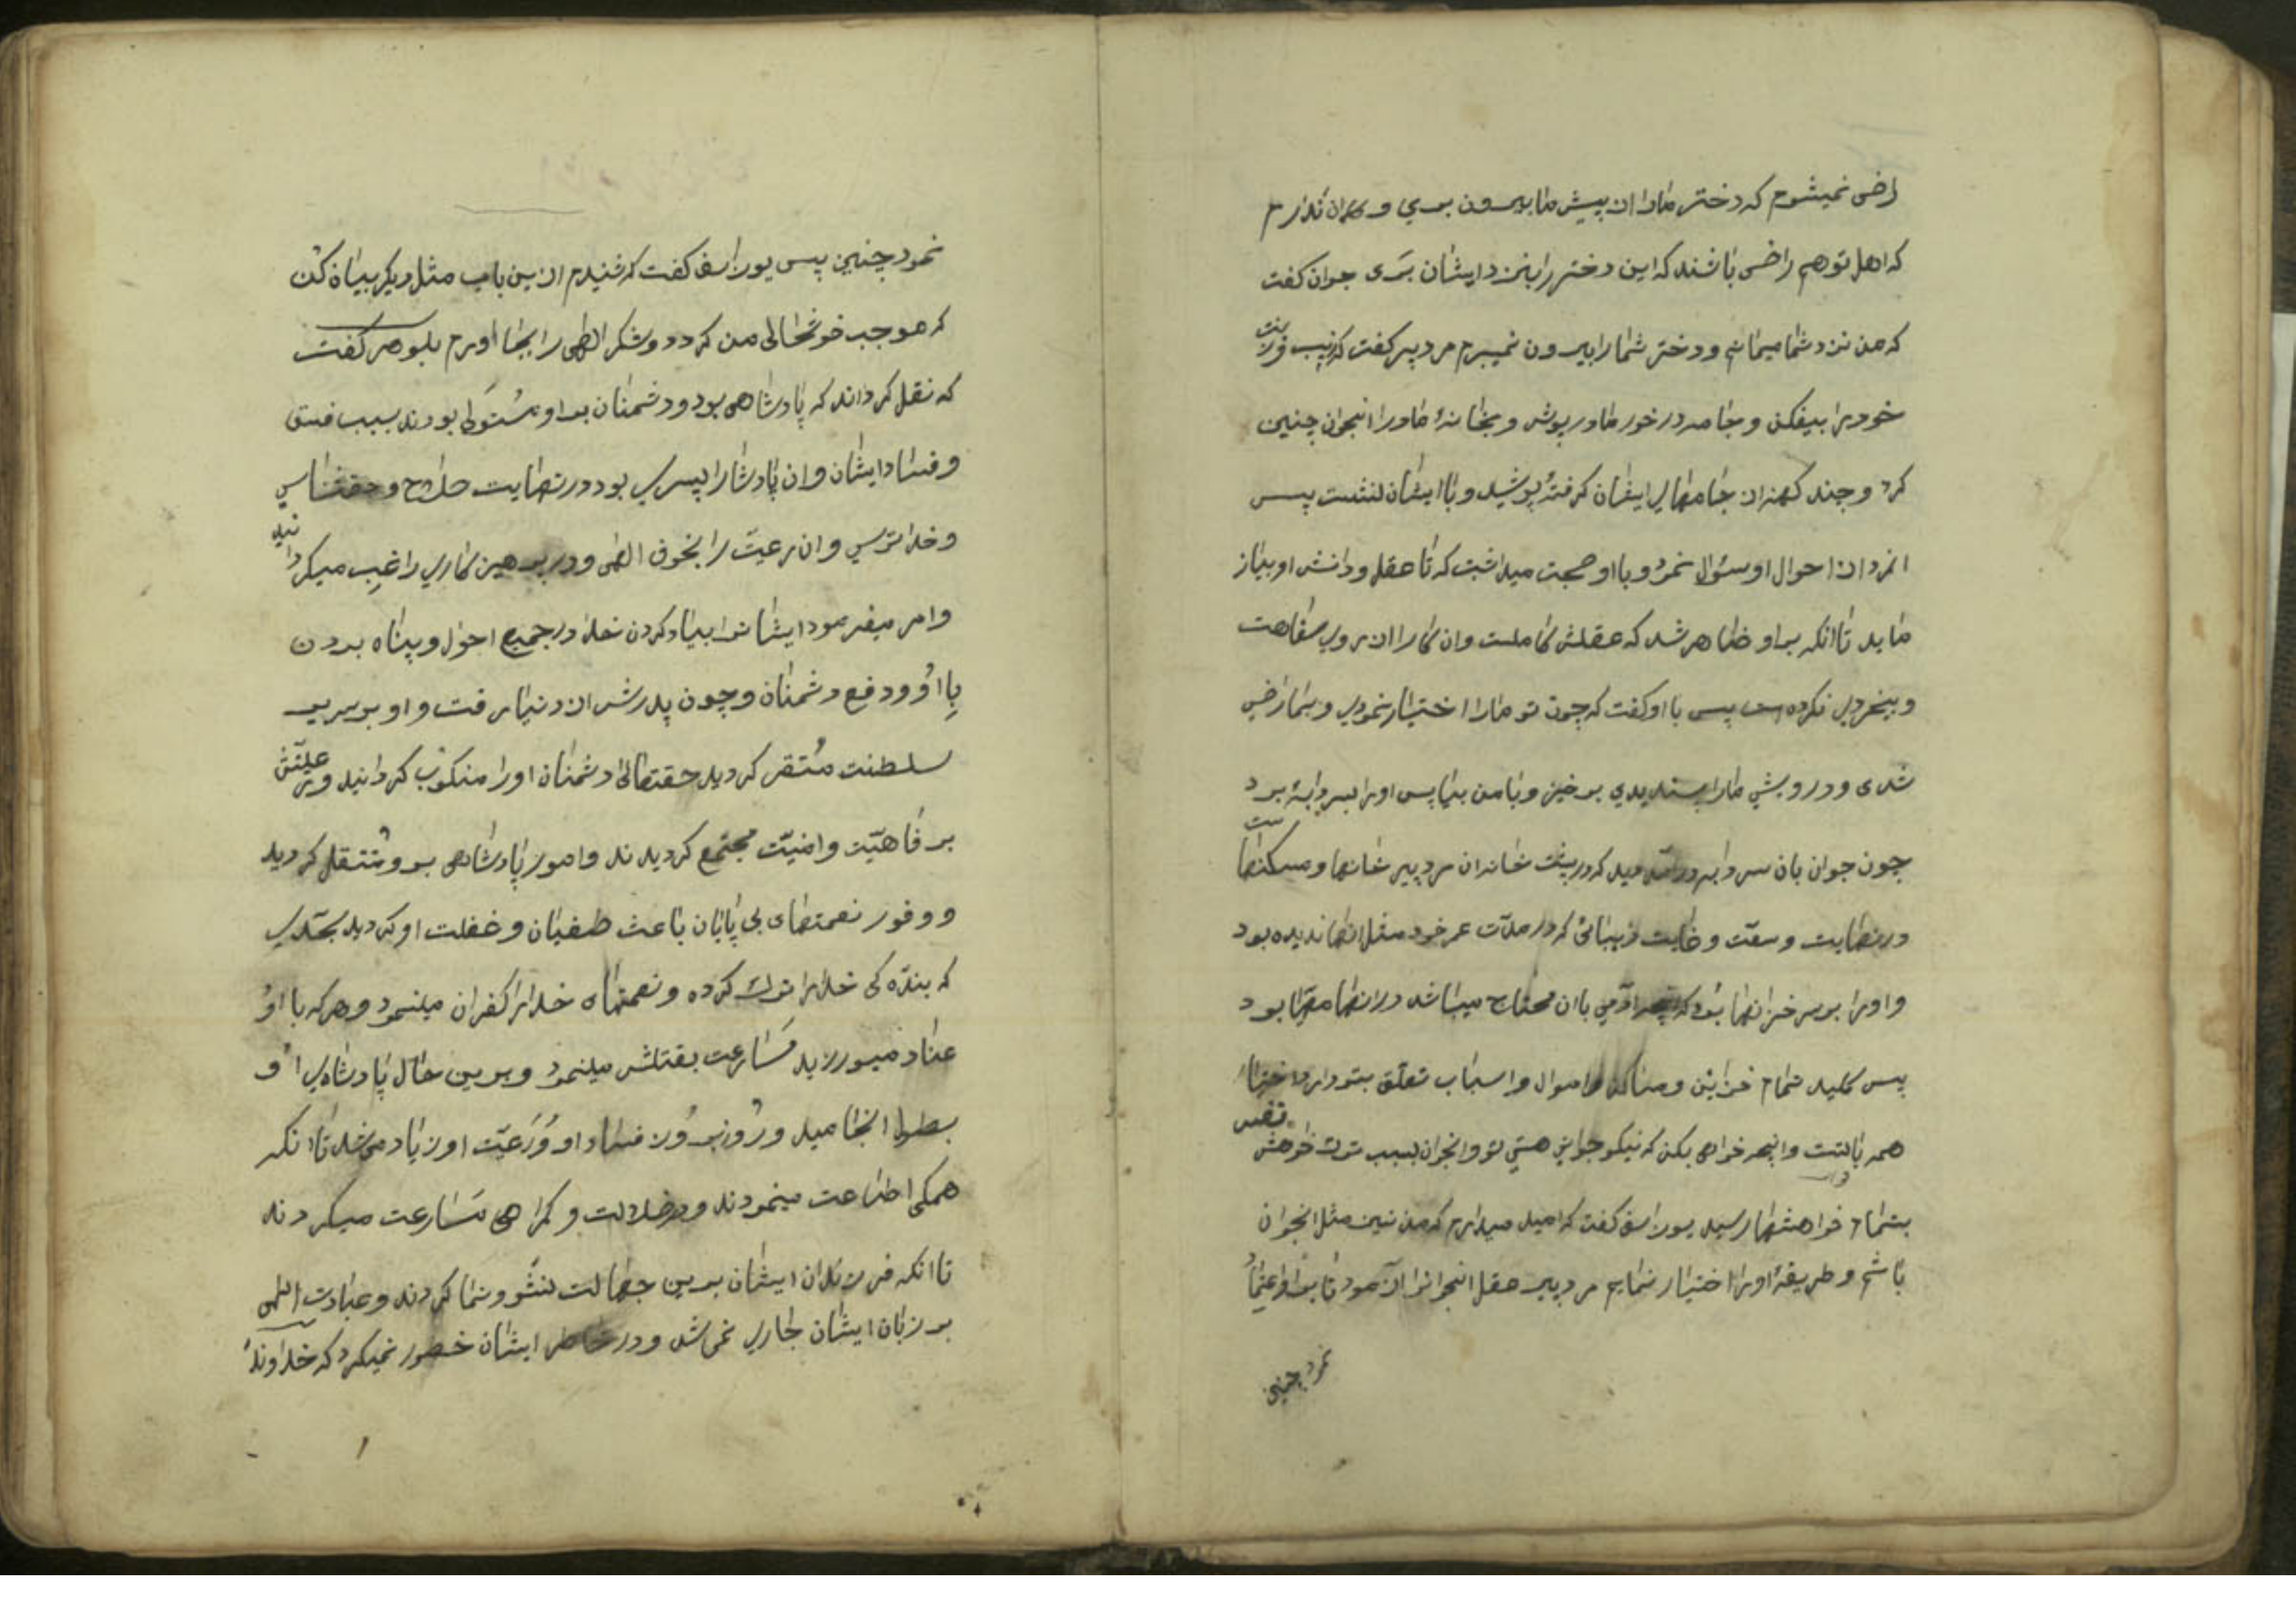 راضی نمیشوم که دختر مارا از پیش ما بیرون بری و گمان ندارم
که اهل تو هم راضی باشند که این دختر را بنزد ایشان بری جوان کفت
که من نزد شما میمانم و دختر شما را بیرون نمیبرم مرد پیر کفت که زیب و زینت
خود را بیفکن و جامه در خور ما در پوش و بخانهٔ ما در ا انجوان چنین
کرد و چند کهنه از جامهای ایشان کرفته پوشید و با ایشان نشست پس
انمرد از احوال او سئوال نمود و با او صحبت میداشت که تا عقل و دانش او بیاز
ماید تا انکه بر او ظاهر شد که عقلش کاملست و ان کار را از روی سفاهت
و بیخردی نکرده است پس با او کفت که چون تو مارا اختیار نمودی و بما راضی
شدی و درویشی مارا پسندیدی برخیز و با من بیا پس اورا بسردابهٔ برد
چون جوان بان سردابه در آمد دید که در پشت خانه ان مرد پیر خانها و مسکنهاست
در نهایت وسعت و غایت زیبائی که در مدّت عمر خود مثل انها ندیده بود
و اورا بر سر خزانها برد که انچه ادمی بان محتاج میباشد در انها مهیّا بود
پس کلید تمام خزاین و مساکن و اموال و اسباب تعلّق بتو دارد اختیار
همه با تست و انچه خواهی بکن که نیکو جوانی هستی تو و انجوان بسبب ترک خواهش نفس
بتمام خواهشها رسید یوذاسف کفت که امید میدارم که من نیز مثل انجوان
باشم و طریقهٔ اورا اختیار نمایم مرد پیر عقل انجوانرا آزمود تا بر او اعتماد
نمود چنین
نمود چنین پس یوذاسف کفت که شنیدم ازین باب مثل دیکر بیان کن
که موجب خوشحالی من کردد و شکر الهی را بجا اورم بلوهر کفت
که نقل کرداند که پادشاهی بود و دشمنان بر او مستولی بودند بسبب فسق
و فساد ایشان و ان پادشارا پسری بود در نهایت صلاح و حقشناسی
و خدا ترسی و ان رعیّت را بخوف الهی و در پرهیز کاری راغب میکردانید
و امر میفرمود ایشانرا بیاد کردن خدا در جمیع احوال و پناه بردن
باو و دفع دشمنان و چون پدرش از دنیا رفت و او بر سریر
سلطنت متقر کردید حقتعالی دشمنان اورا منکوب کردانید و رعیّتش
بر فاهیّت و امنیّت مجتمع کردیدند و امور پادشاهی بر و منتقل کردید
و وفور نعمتهای بی پایان باعث طغیان و غفلت او کردید بحدّی
که بندّه کی خدارا ترک کرده و نعمتهای خدارا کفران مینمود و هر که با او
عناد میورزید مسارعت بقتلش مینمود و برین حال پادشاهی او
بطول انجامید و روز بروز فساد او و رعیّت او زیاد میشد تا انکه
همکی اطاعت مینمودند و در ضلالت و کمراهی مسارعت میکردند
تا انکه فرزندان ایشان برین جهالت نشو و نما کردند و عبادت الهی
بر زبان ایشان جاری نمیشد و در خاطر ایشان خطور نمیکرد که خداوند